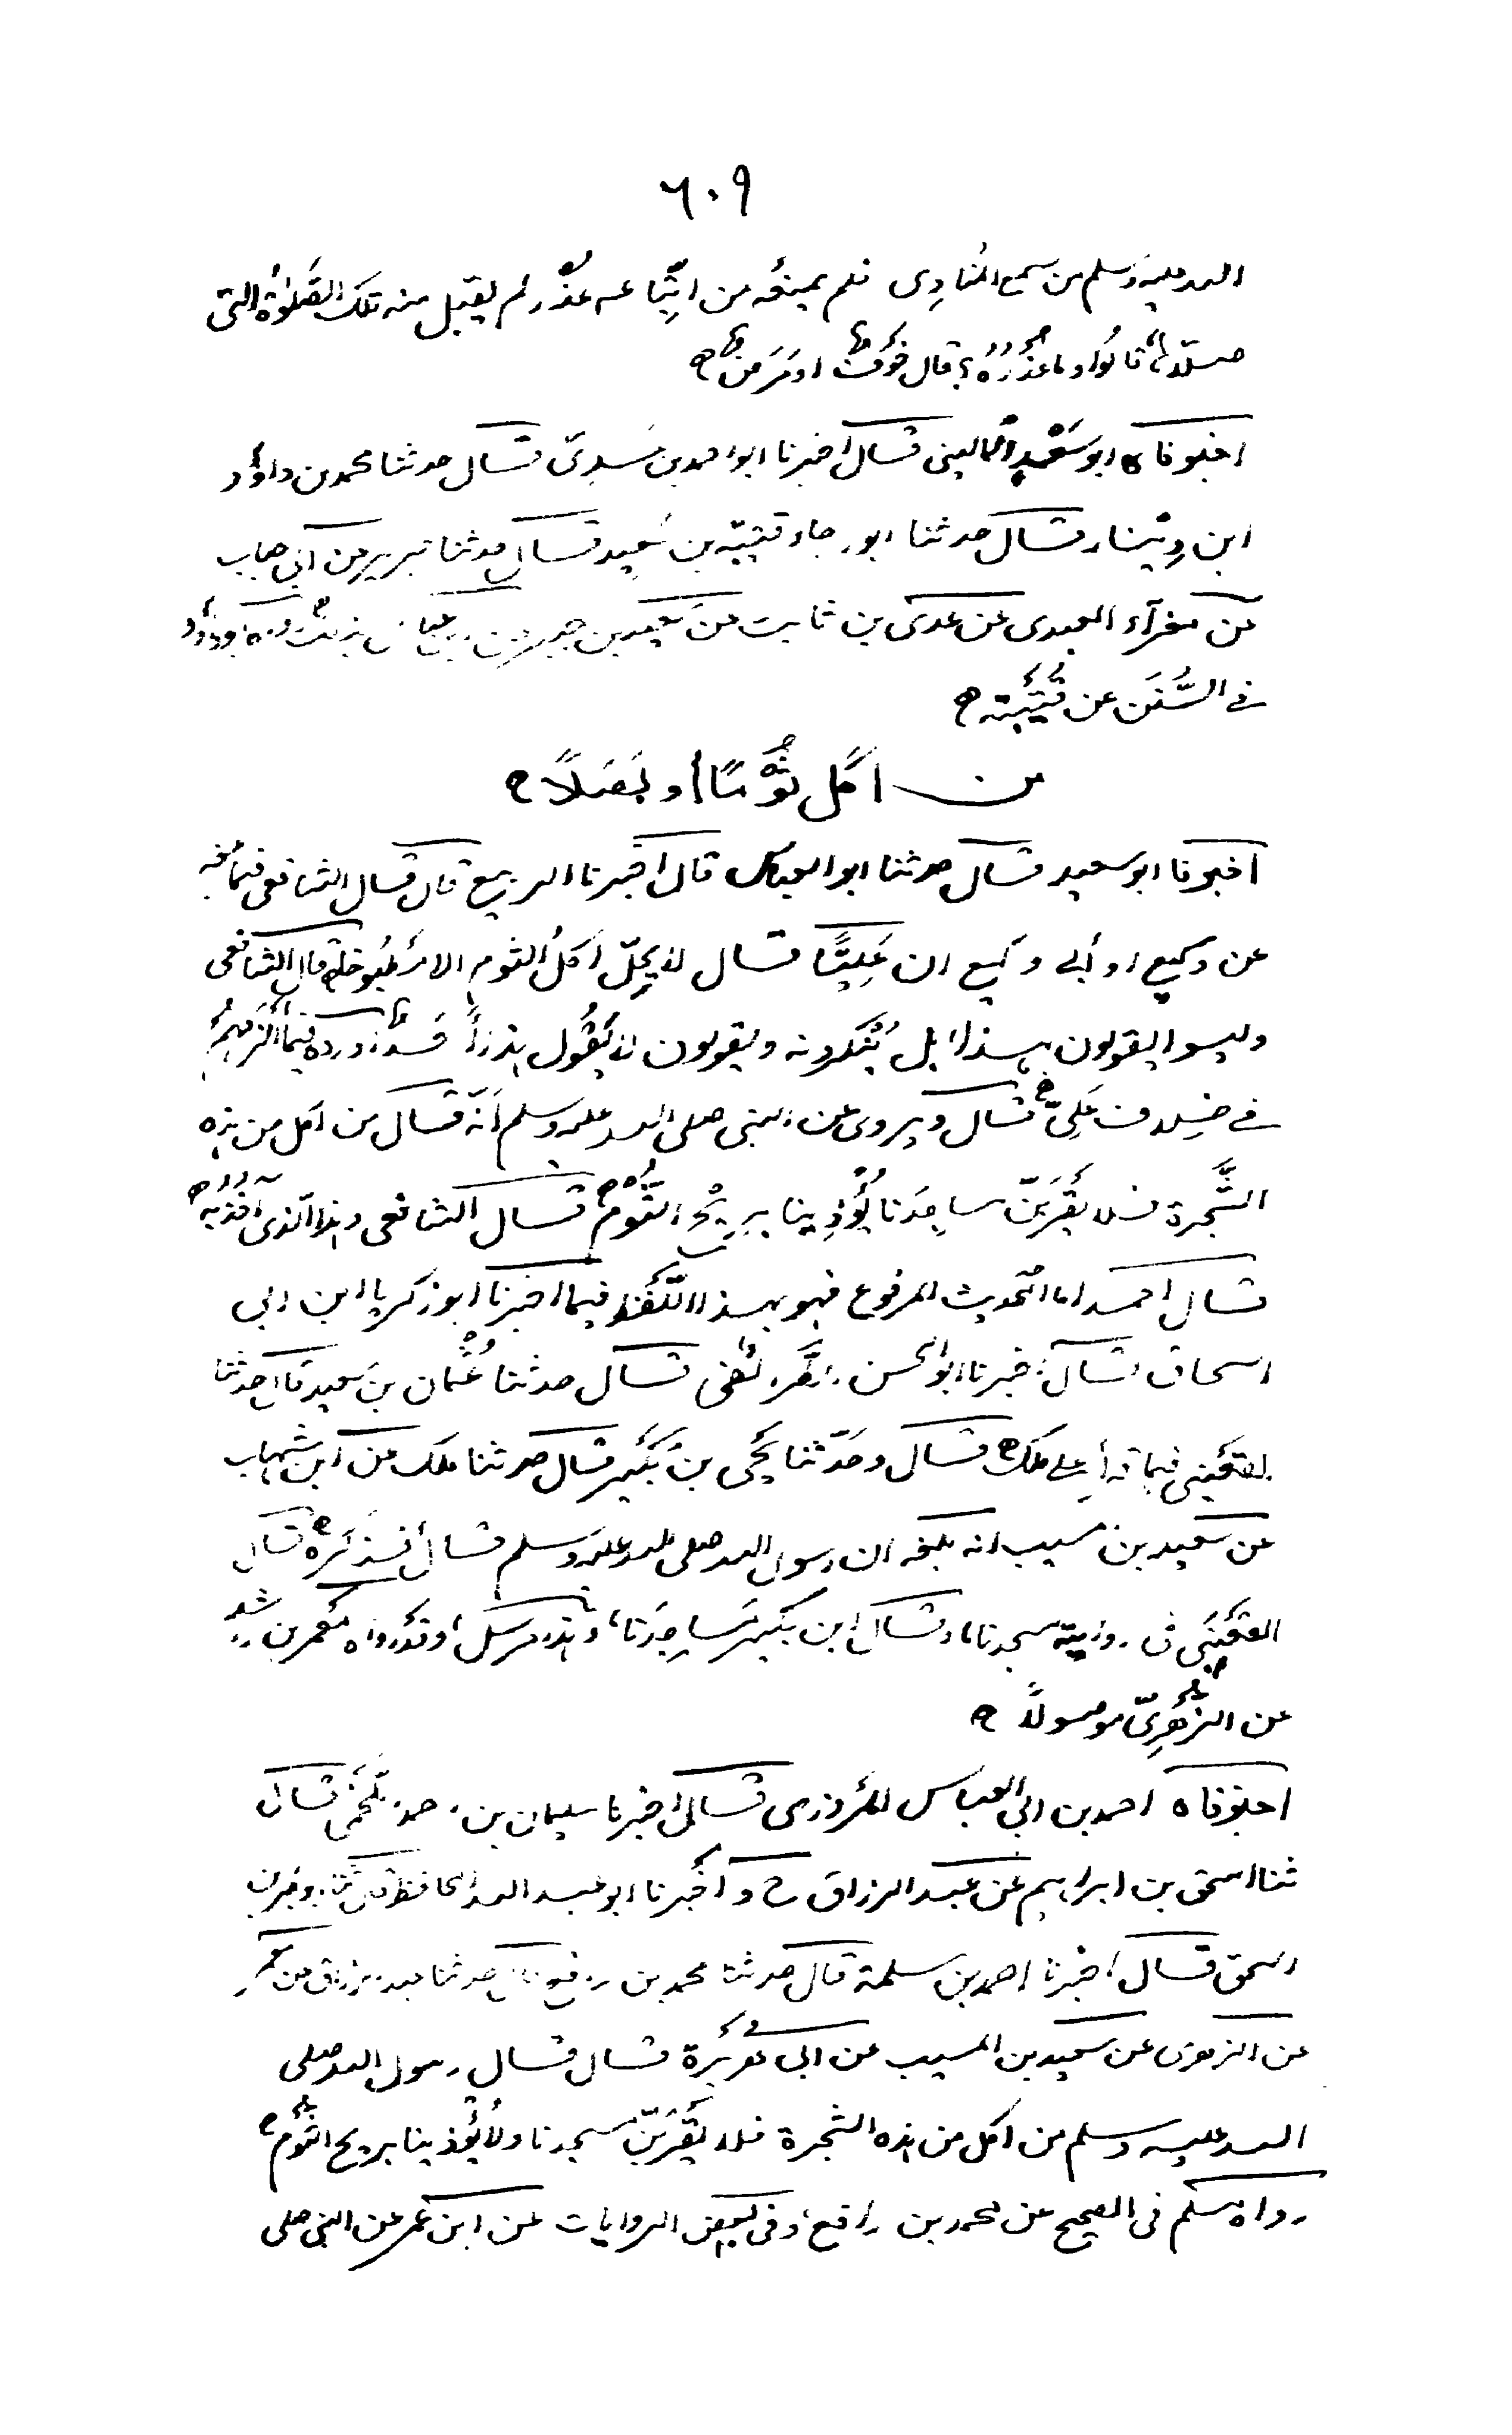 ٦٠٩
الله عليه وسلم من سمع المُنادِى فلم يمنعه من اتِّبَاعه عُذْر لم يقبل منه تلك الصَّلوٰة التى
صلّاها قالُوا وما عُذْرُهُ؟ قال خَوفٌ او مَرَضٌ
اخبرناه ابو سَعْد المالينى قال اخبرنا ابو احمد بن عَدِىّ قال حدثنا محمد بن داؤد
ابن دِيْنار قال حدثنا ابو رجاء قتيبة بن سَعِيد قال حدثنا جرير عن ابى جناب
عن مغرآء العبدى عن عدى بن ثابت عن سَعِيد بن جبير عن ابن عباس بذلك رواه ابوداؤد
فے السُّنَن عن قُتَيْبَة
من اَكَل ثُوْمًا أو بَصَلًا
اخبرنا ابو سعيد قال حدثنا ابو العباس قال اخبرنا الربيع قال قال الشافعى فيما بلغه
عن وكيع او أبى وكيع ان عَلِيًّا قال لا يَحِلّ اَكلُ الثوم الا مَطبُوخًا قال الشافعى
وليسوا يقولون بهذا بل يُنْكرونه ويقولون لا يَقُول بهذا أَحَدٌ اورده فيما اَلْزَمَهُم
فے خِلاف عَلِىّ قال ويروى عن النبى صلى الله عليه وسلم اَنّه قال من اكل من هذه
الشَّجرة فلا يَقْرَبَنّ مساجِدَنا يُؤْذِينا بِرِيْح الثُّوْم قال الشافعى وهذا الّذى نأخذ به
قال احمد اما الحديث المرفوع فهو بهذا اللَّفظ فيما اخبرنا ابو زكريا ابن ابى
اسحاق قال اخبرنا ابو الحسن الطَّرائفى قال حدثنا عُثْمان بن سَعِيد قال حدثنا
القعْنَبى فيما قرأ على ملك قال وحَدَّثنا يَحْيى بن بُكَيْر قال حدثنا ملك عن ابن شهاب
عن سعيد بن مسيب انه بلغه ان رسول الله صلى الله عليه وسلم قال فَذَكَرَه قال
القعْنَبِى فى روايته مسجدنا، وقال ابن بكير مَساجِدَنا، وهذا مرسل وقد رواه مَعْمر بن راشد
عن الزُّهْرِىّ موصولًا
اخبرناه احمد بن ابى العباس المَروزى قال اخبرنا سليمان بن احمد اللَّخْمِى قال
ثنا اسحق بن ابراهيم عن عبد الرزاق ح واَخْبرنا ابو عبد الله الحافظ قال ثنا ابو بكر بن
اسحق قال اخبرنا احمد بن سلمة قال حدثنا محمد بن رافع قال حدثنا عبد الرزاق عن مَعْمَر
عن الزهرى عن سَعِيد بن المسيب عن ابى هُرَيْرة قال قال رسول الله صلى
الله عليه وسلم من اكل من هذه الشجرة فلا يَقْرَبَنّ مسجدنا ولا يُؤْذينا بريح الثُّوم
رواه مسلم فى الصحيح عن محمد بن رافع، وفى بعض الروايات عن ابن عمر عن النبى صلى